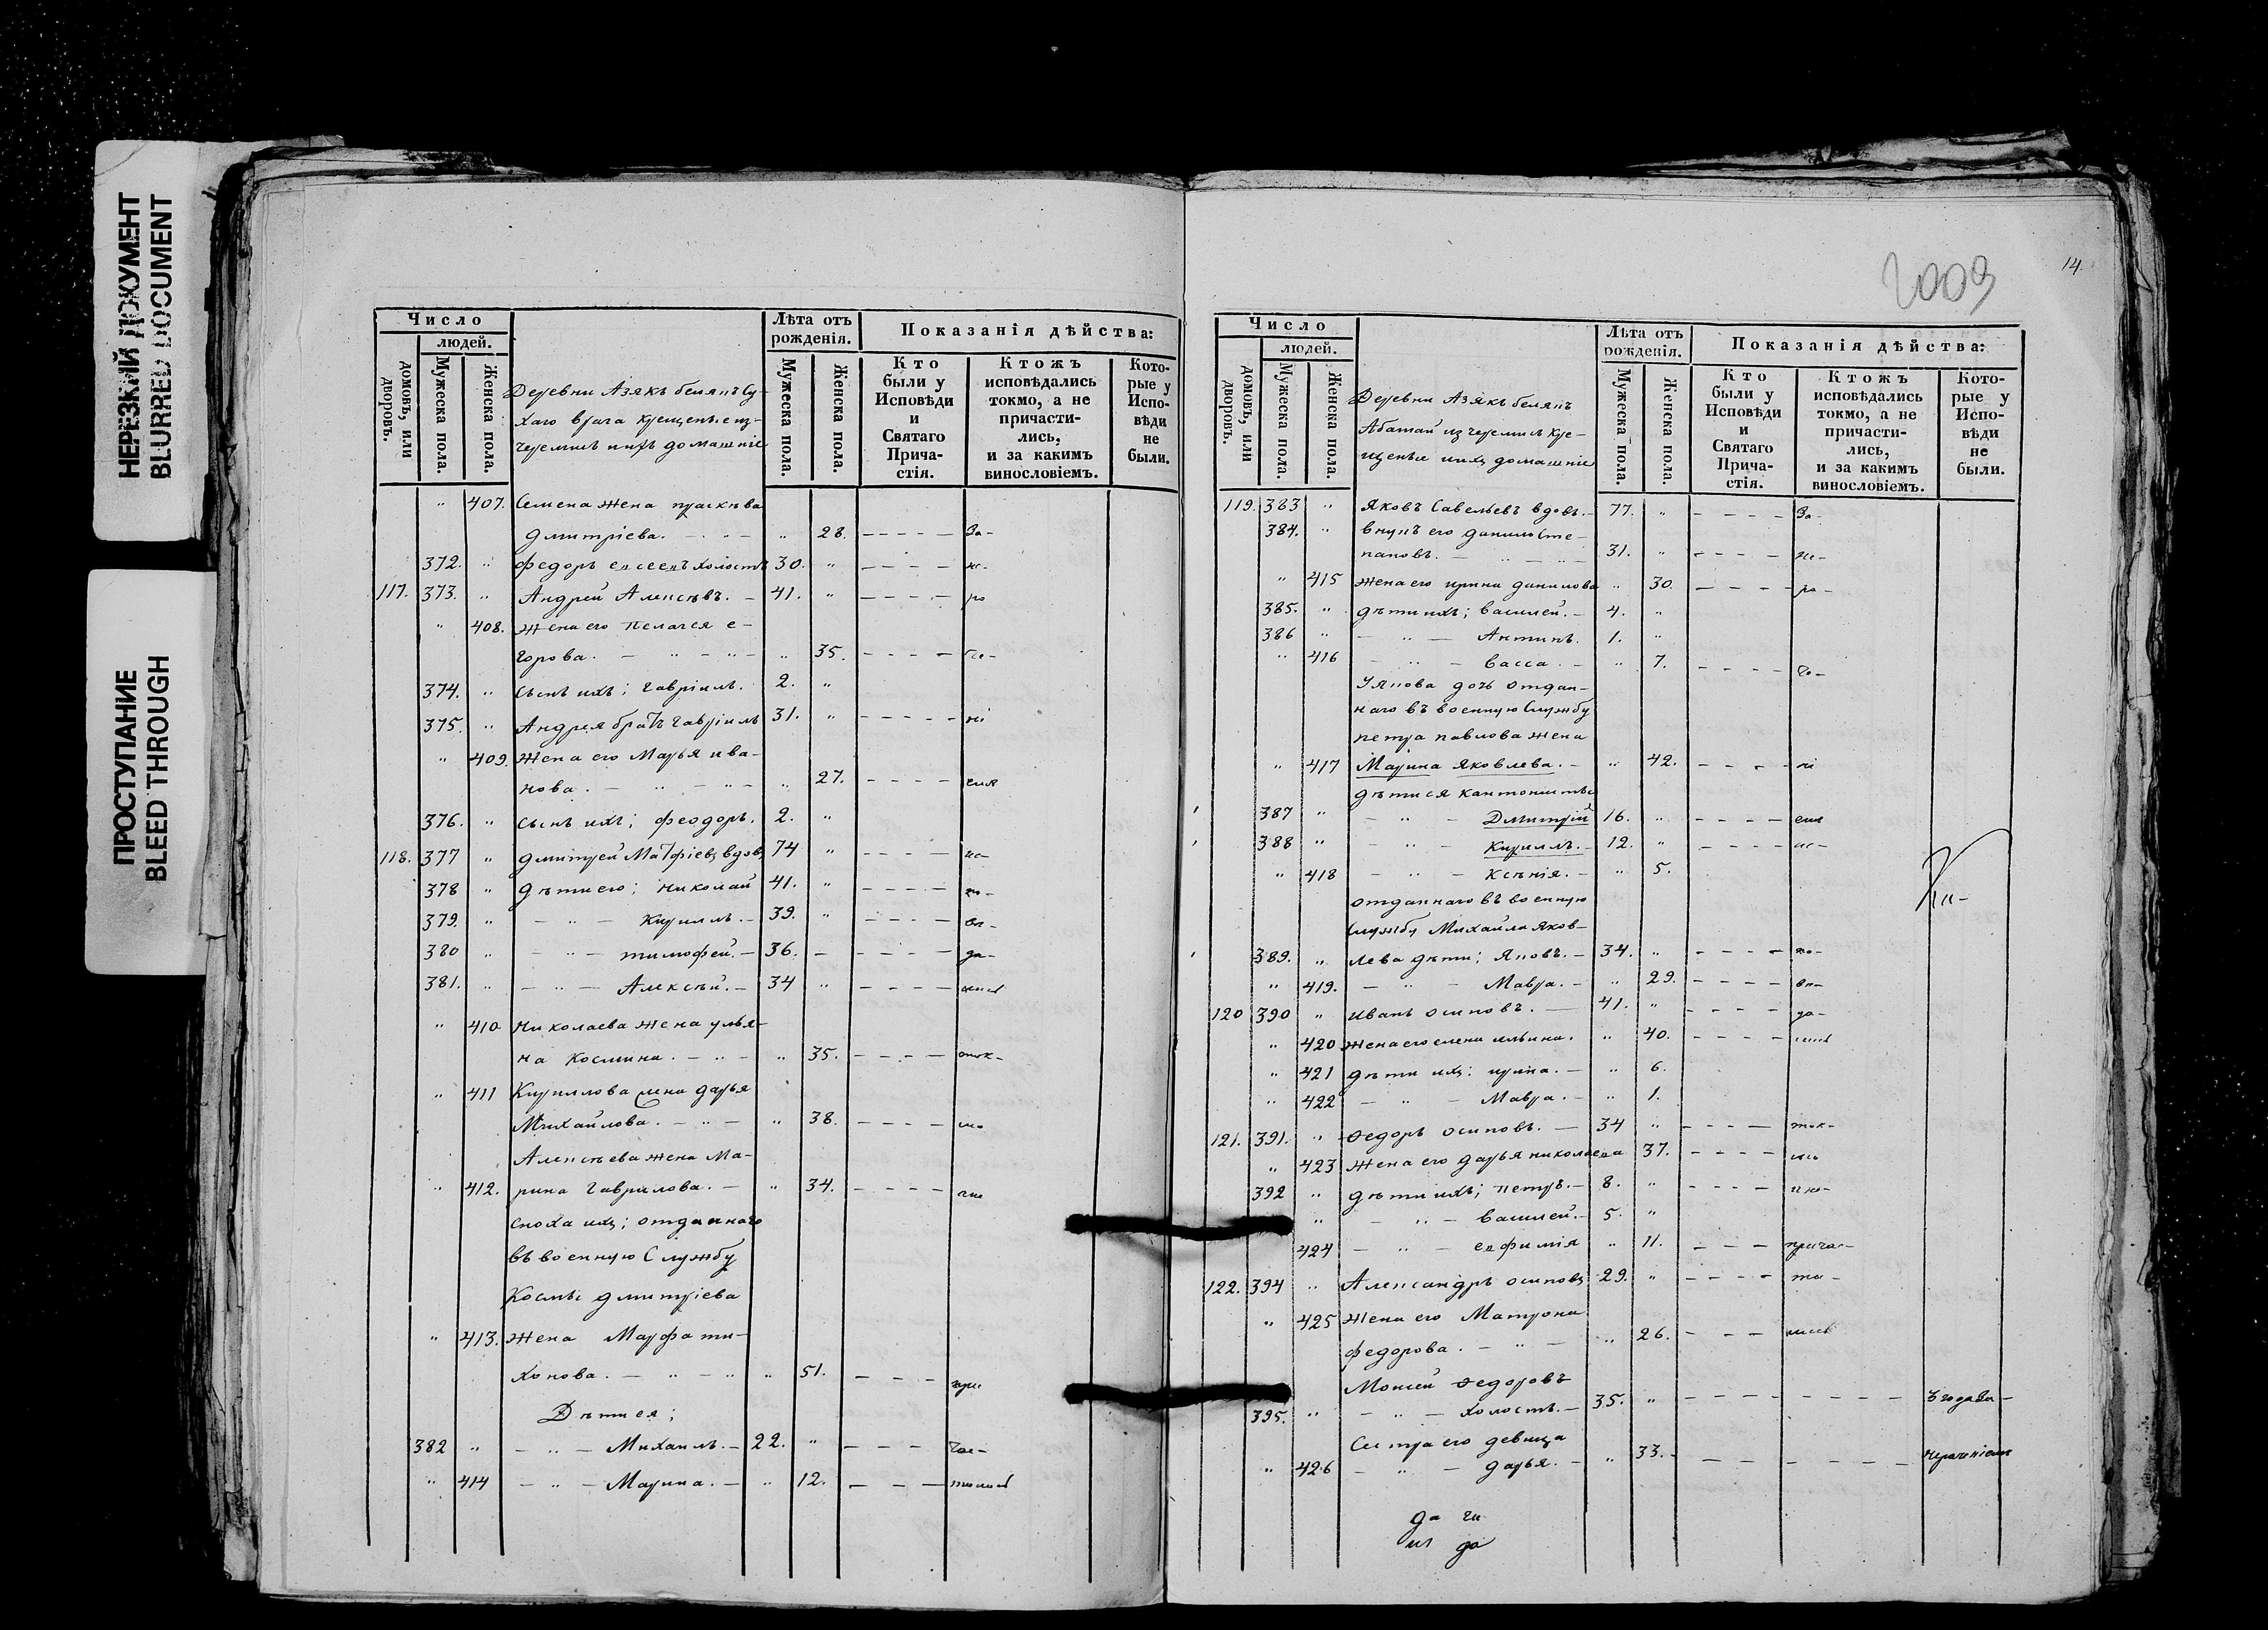 НЕРЕЗКИЙ ДОКУМЕНТ
BLURRED DOCUMENT
ПРОСТУПАНИЕ
BLEED THROUGH
Число
людей.
домовъ, или дворовъ.
Мужеска пола.
Женска пола.
Деревни Азякъ белякъ Су-
хаго врага крещеные из
черемисъ и ихъ домашніе
Лѣта отъ рожденія.
Мужеска пола.
Женска пола.
Показанія дѣйства:
Кто были у Исповѣди и Святаго Прича-стія.
Ктожъ исповѣдались токмо, а не причасти-лись, и за какимъ винословіемъ.
Кото-рые у Испо-вѣди не были.
" 407. Семена жена прасковья
дмитріева. " 28. За-
372. " федоръ елисеевъ холостъ 30. " ис-
117. 373. " Андрей Алексѣевъ. 41. " по
" 408. жена его пелагея е-
горова. " 35.
374. " сынъ ихъ; гавріилъ. 2. "
375. " Андрея братъ гавріилъ 31. " ні
" 409. жена его Марья ива-
нова. " 27. емъ
376. " сынъ ихъ; феодоръ. 2. "
118. 377 " дмитрей Матфіевъ вдовъ 74 " ис-
378 " дѣти его; николай 41. " по-
379. " кириллъ. 39. " вѣ-
380 " тимофей. 36. да-
381. " Алексѣй. 34 "
" 410 николаева жена улья-
на космина. " 35. ток-
" 411 Кирилова жена дарья
Михайлова. " 38. мо
Алексѣева жена Ма-
" 412. рина гаврилова. " 34.
сноха ихъ; отданнаго
въ военную Службу
Космы дмитріева
" 413. жена Марфа ти-
хонова. " 51. при
Дѣти ея;
382 " Михаилъ. 22. " час-
" 414 Марина. " 12.
2009
14.
Число
людей.
домовъ, или дворовъ.
Мужеска пола.
Женска пола.
Деревни Азякъ белякъ
Абатай из черемисъ кре-
щеные и ихъ домашніе
Лѣта отъ рожденія.
Мужеска пола.
Женска пола.
Показанія дѣйства:
Кто были у Исповѣди и Святаго Прича-стія.
Ктожъ исповѣдались токмо, а не причасти-лись, и за какимъ винословіемъ.
Кото-рые у Испо-вѣди не были.
119. 383 " Яковъ Савельевъ вдовъ. 77. " За-
384. " внукъ его данило сте-
пановъ. 31. " не-
" 415 жена его ирина данилова " 30. ра-
385. " дѣти ихъ; василей. 4. "
386 " Антипъ. 1. "
" 416 васса. " 7.
Якова дочь отдан-
наго въ военную Службу
петра павлова жена
" 417 Марина Яковлева. " 42. ні
дѣти ея кантонисты
387 " Дмитрій 16. " емъ
388 " Кириллъ. 12. " ис-
" 418 Ксѣнія. " 5.
отданнаго въ военную
службу Михайла Яков-
389. " лева дѣти; Яковъ. 34. " по-
" 419. Мавра. " 29. вѣ-
120 390 " иванъ осиповъ. 41. " да-
" 420 жена его елена ильина. " 40.
" 421 дѣти ихъ: ирина. " 6.
" 422 Мавра. " 1.
121. 391. " Федоръ осиповъ. 34 " ток-
" 423 жена его дарья николаева 37. мо
392 " дѣти ихъ; петръ. 8. "
" василей. 5. "
424 евфимія " 11. причас-
122. 394 " Александръ осиповъ 29. "
" 425 жена его Матрона
федорова. " 26.
Моисей Федоровъ
395. " холостъ. 35. "
Сестра его девица
" 426 дарья. " 33.